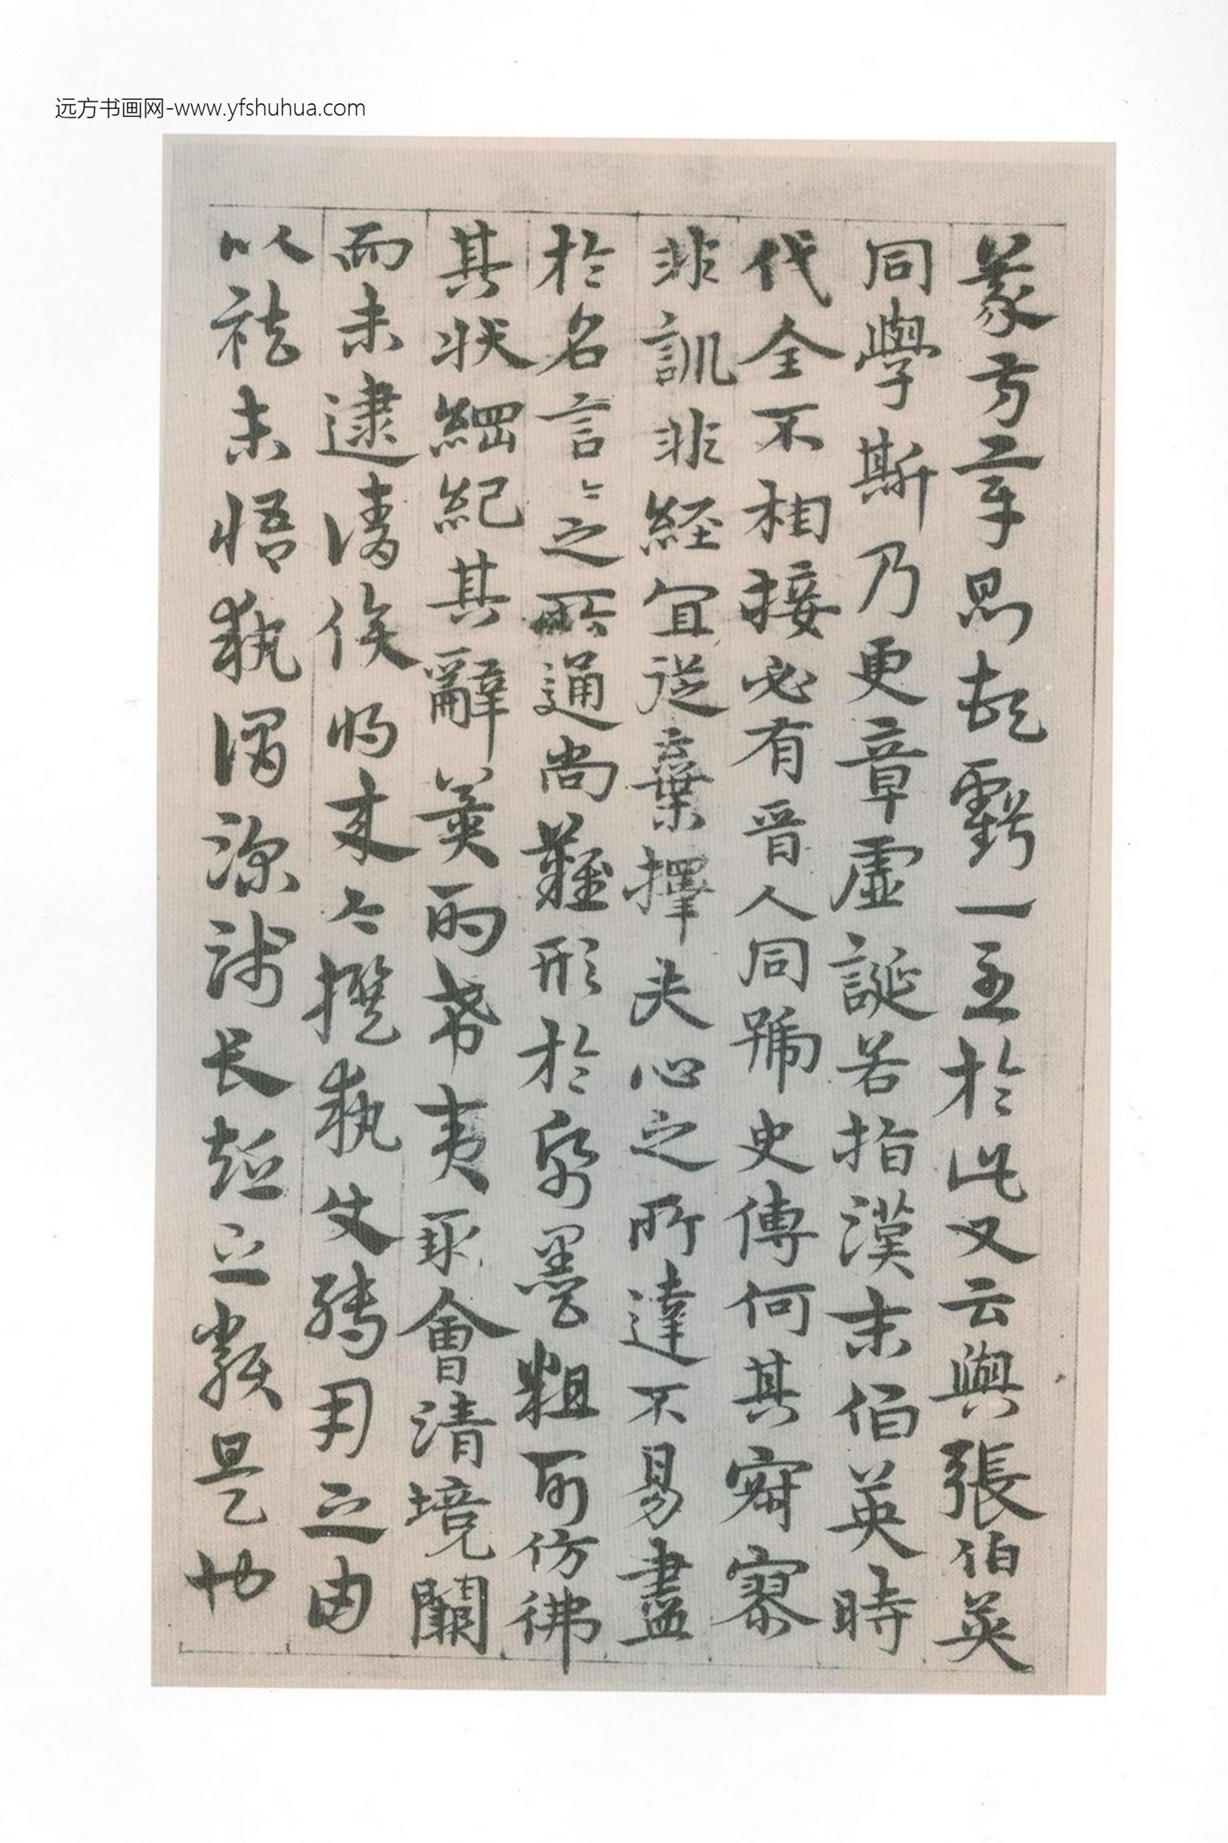 远方书画网-www.yfshuhua.com
篆方章思乖霸一至於此又云與張伯英
同學斯乃更彰虛誕若指漢末伯英時
代全不相接必有晉人同號史傳何其寂寥
非訓非經宜從棄擇夫心之所達不易盡
於名言々之所通尚難形於紙墨粗可仿彿
其狀綱紀其辭冀酌希夷取會清境闕
而未逮請俟將來今撰執使轉用之由
以祛未悟執謂深淺長短之類是也